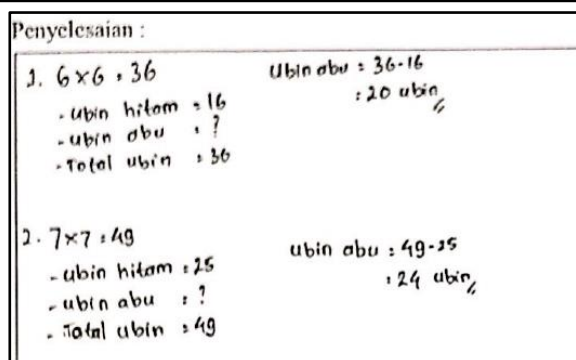 Penyelesaian :
1. 6×6 = 36
- ubin hitam = 16
- ubin abu = ?
- Total ubin = 36
Ubin abu = 36-16
= 20 ubin
2. 7×7 = 49
- ubin hitam = 25
- ubin abu = ?
- Total ubin = 49
ubin abu = 49-25
= 24 ubin